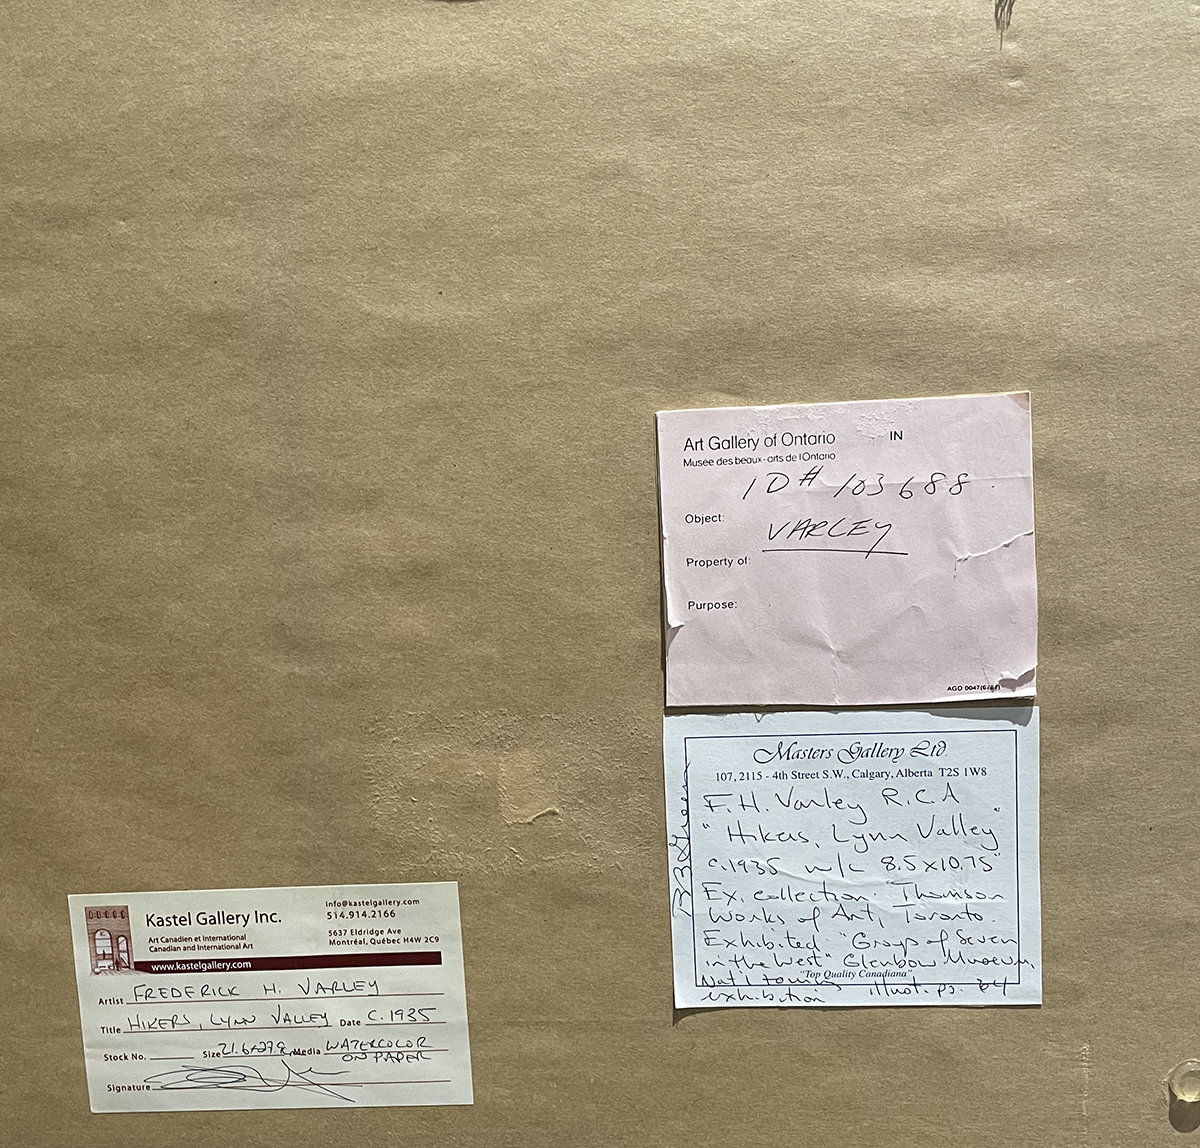 Art Gallery of Ontario IN
Musée des beaux-arts de l'Ontario
ID# 103688
Object:
VARLEY
Property of:
Purpose:
AGO 0047
Masters Gallery Ltd.
107, 2115 - 4th Street S.W., Calgary, Alberta T2S 1W8
F.H. Varley R.C.A
"Hikers, Lynn Valley"
c.1935 w/c 8.5x10.75"
Ex. collection: Thomson
Works of Art, Toronto.
Exhibited: "Group of Seven
in the West" Glenbow Museum,
"Top Quality Canadiana"
Nat'l touring
exhibition illust. pg. 64
Kastel Gallery Inc.
Art Canadien et International
Canadian and International Art
info@kastelgallery.com
514.914.2166
5637 Eldridge Ave
Montréal, Québec H4W 2C9
www.kastelgallery.com
Artist FREDERICK H. VARLEY
Title HIKERS, LYNN VALLEY Date C. 1935
Stock No. Size 21.6x27.9cm Media WATERCOLOR
ON PAPER
Signature